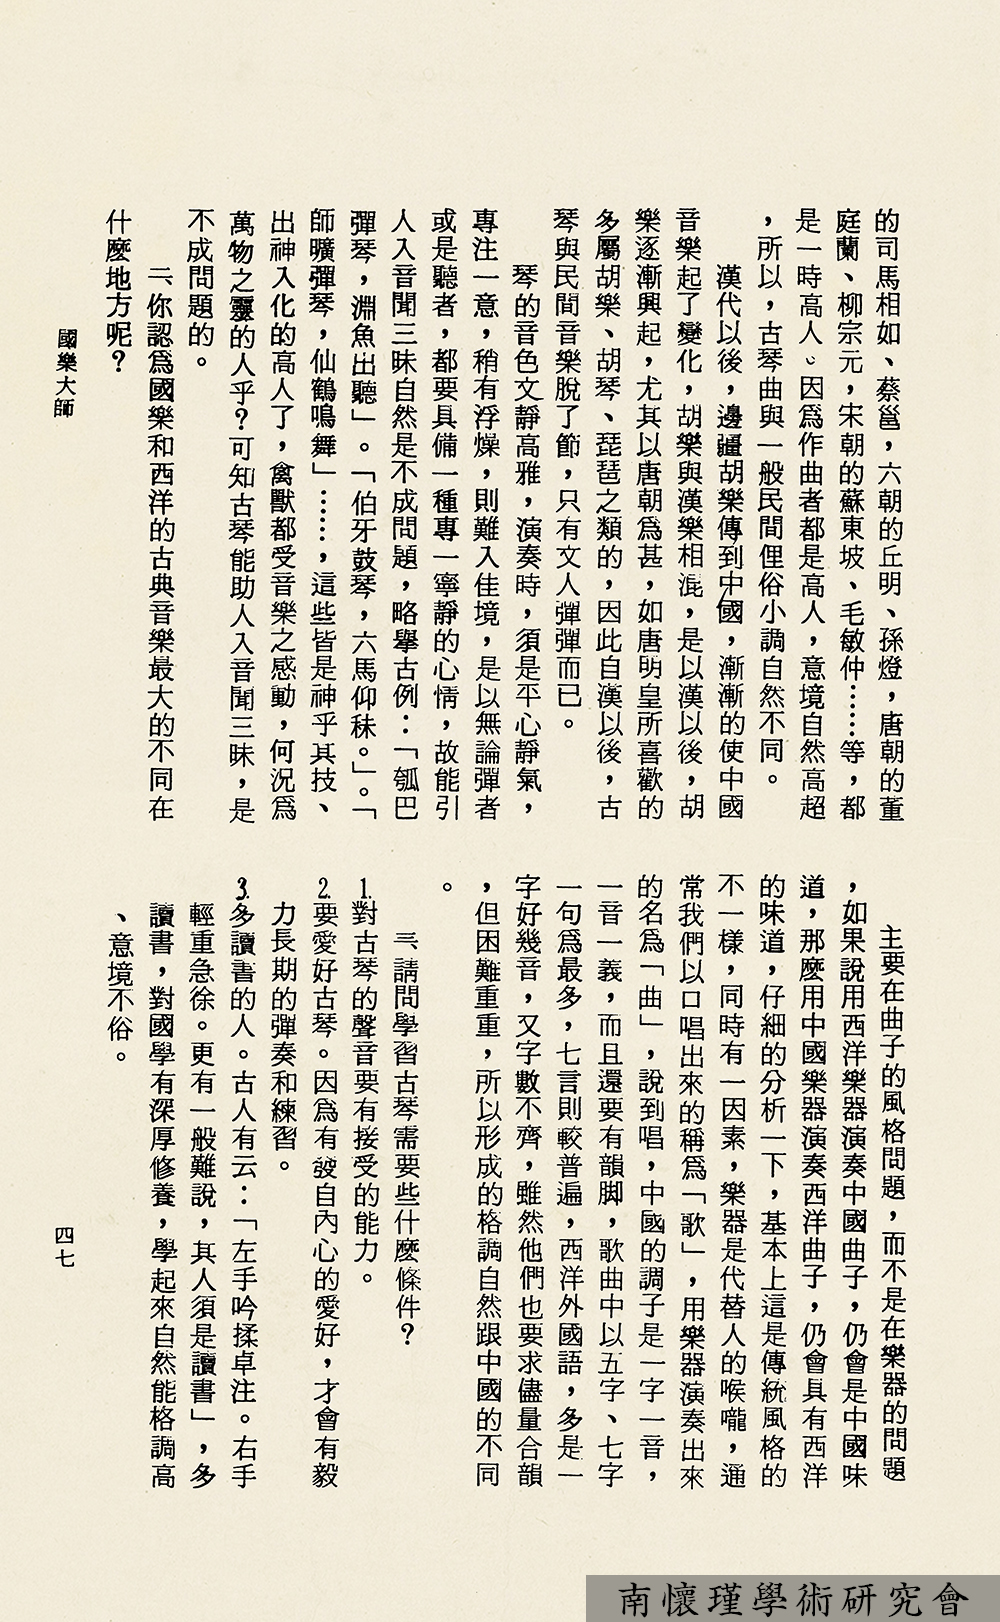 的司馬相如、蔡邕，六朝的丘明、孫燈，唐朝的董
庭蘭、柳宗元，宋朝的蘇東坡、毛敏仲……等，都
是一時高人。因爲作曲者都是高人，意境自然高超
，所以，古琴曲與一般民間俚俗小調自然不同。
漢代以後，邊疆胡樂傳到中國，漸漸的使中國
音樂起了變化，胡樂與漢樂相混，是以漢以後，胡
樂逐漸興起，尤其以唐朝爲甚，如唐明皇所喜歡的
多屬胡樂、胡琴、琵琶之類的，因此自漢以後，古
琴與民間音樂脫了節，只有文人彈彈而已。
琴的音色文靜高雅，演奏時，須是平心靜氣，
專注一意，稍有浮燥，則難入佳境，是以無論彈者
或是聽者，都要具備一種專一寧靜的心情，故能引
人入音聞三昧自然是不成問題，略擧古例：「瓠巴
彈琴，淵魚出聽」。「伯牙鼓琴，六馬仰秣。」。「
師曠彈琴，仙鶴鳴舞」……，這些皆是神乎其技、
出神入化的高人了，禽獸都受音樂之感動，何況爲
萬物之靈的人乎？可知古琴能助人入音聞三昧，是
不成問題的。
二、你認爲國樂和西洋的古典音樂最大的不同在
什麽地方呢？
主要在曲子的風格問題，而不是在樂器的問題
，如果說用西洋樂器演奏中國曲子，仍會是中國味
道，那麽用中國樂器演奏西洋曲子，仍會具有西洋
的味道，仔細的分析一下，基本上這是傳統風格的
不一樣，同時有一因素，樂器是代替人的喉嚨，通
常我們以口唱出來的稱爲「歌」，用樂器演奏出來
的名爲「曲」，說到唱，中國的調子是一字一音，
一音一義，而且還要有韻脚，歌曲中以五字、七字
一句爲最多，七言則較普遍，西洋外國語，多是一
字好幾音，又字數不齊，雖然他們也要求儘量合韻
，但困難重重，所以形成的格調自然跟中國的不同
。
三、請問學習古琴需要些什麽條件？
1.對古琴的聲音要有接受的能力。
2.要愛好古琴。因爲有發自內心的愛好，才會有毅
力長期的彈奏和練習。
3.多讀書的人。古人有云：「左手吟揉卓注。右手
輕重急徐。更有一般難說，其人須是讀書」，多
讀書，對國學有深厚修養，學起來自然能格調高
、意境不俗。
國樂大師
四七
南懷瑾學術研究會